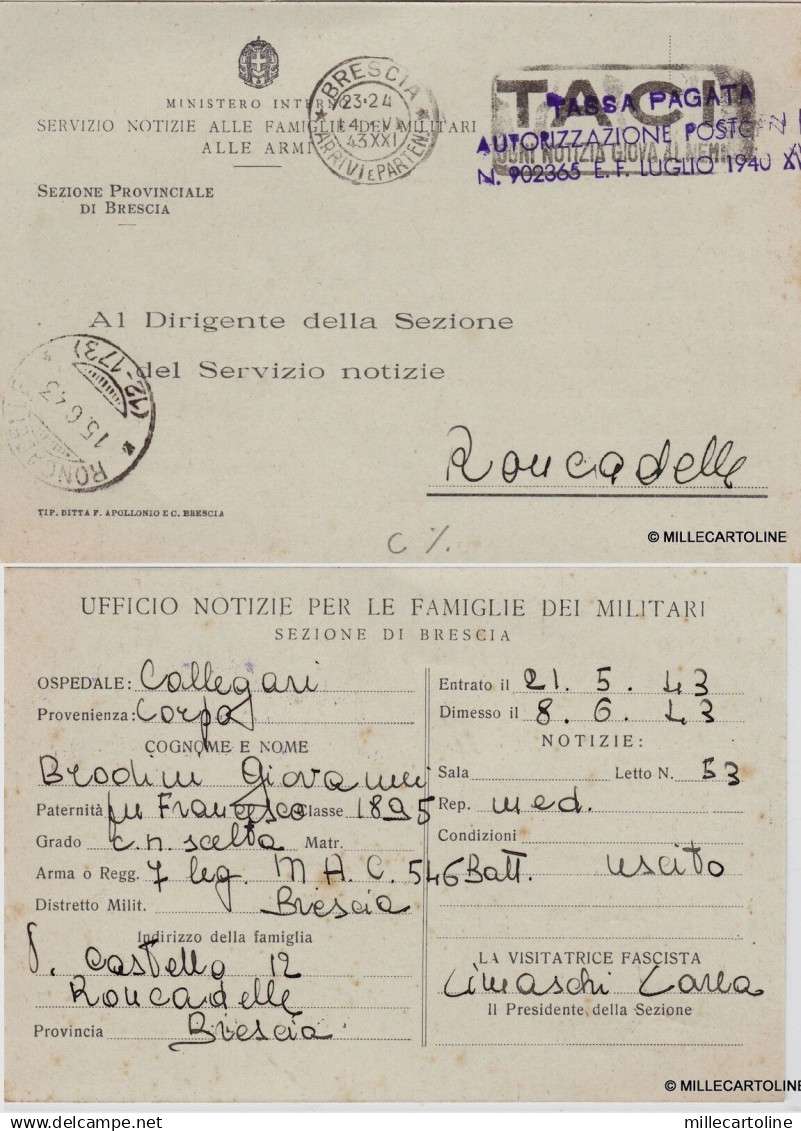 MINISTERO INTERNO
SERVIZIO NOTIZIE ALLE FAMIGLIE DEI MILITARI
ALLE ARMI
SEZIONE PROVINCIALE
DI BRESCIA
BRESCIA
23·24
43 XXI
ARRIVI E PARTEN.
TACI
OGNI NOTIZIA GIOVA AL NEMICO
TASSA PAGATA
AUTORIZZAZIONE POSTE
N. 902365 E. F. LUGLIO 1940
Al Dirigente della Sezione
del Servizio notizie
Roncadelle
(12-173)
15.6.43
TIP. DITTA F. APOLLONIO E C. BRESCIA
C %.
© MILLECARTOLINE
UFFICIO NOTIZIE PER LE FAMIGLIE DEI MILITARI
SEZIONE DI BRESCIA
OSPEDALE: Callegari
Provenienza: Corpo
COGNOME E NOME
Brodini Giovanni
Paternità fu Francesco Classe 1895
Grado c.n. scelta Matr.
Arma o Regg. 7 leg. M A C. 546 Batt.
Distretto Milit. Brescia
Indirizzo della famiglia
Castello 12
Roncadelle
Provincia Brescia
Entrato il 21. 5. 43
Dimesso il 8. 6. 43
NOTIZIE:
Sala Letto N. 53
Rep. med.
Condizioni
uscito
LA VISITATRICE FASCISTA
Cimaschi Carla
Il Presidente della Sezione
© MILLECARTOLINE
delcampe.net
millecartoline